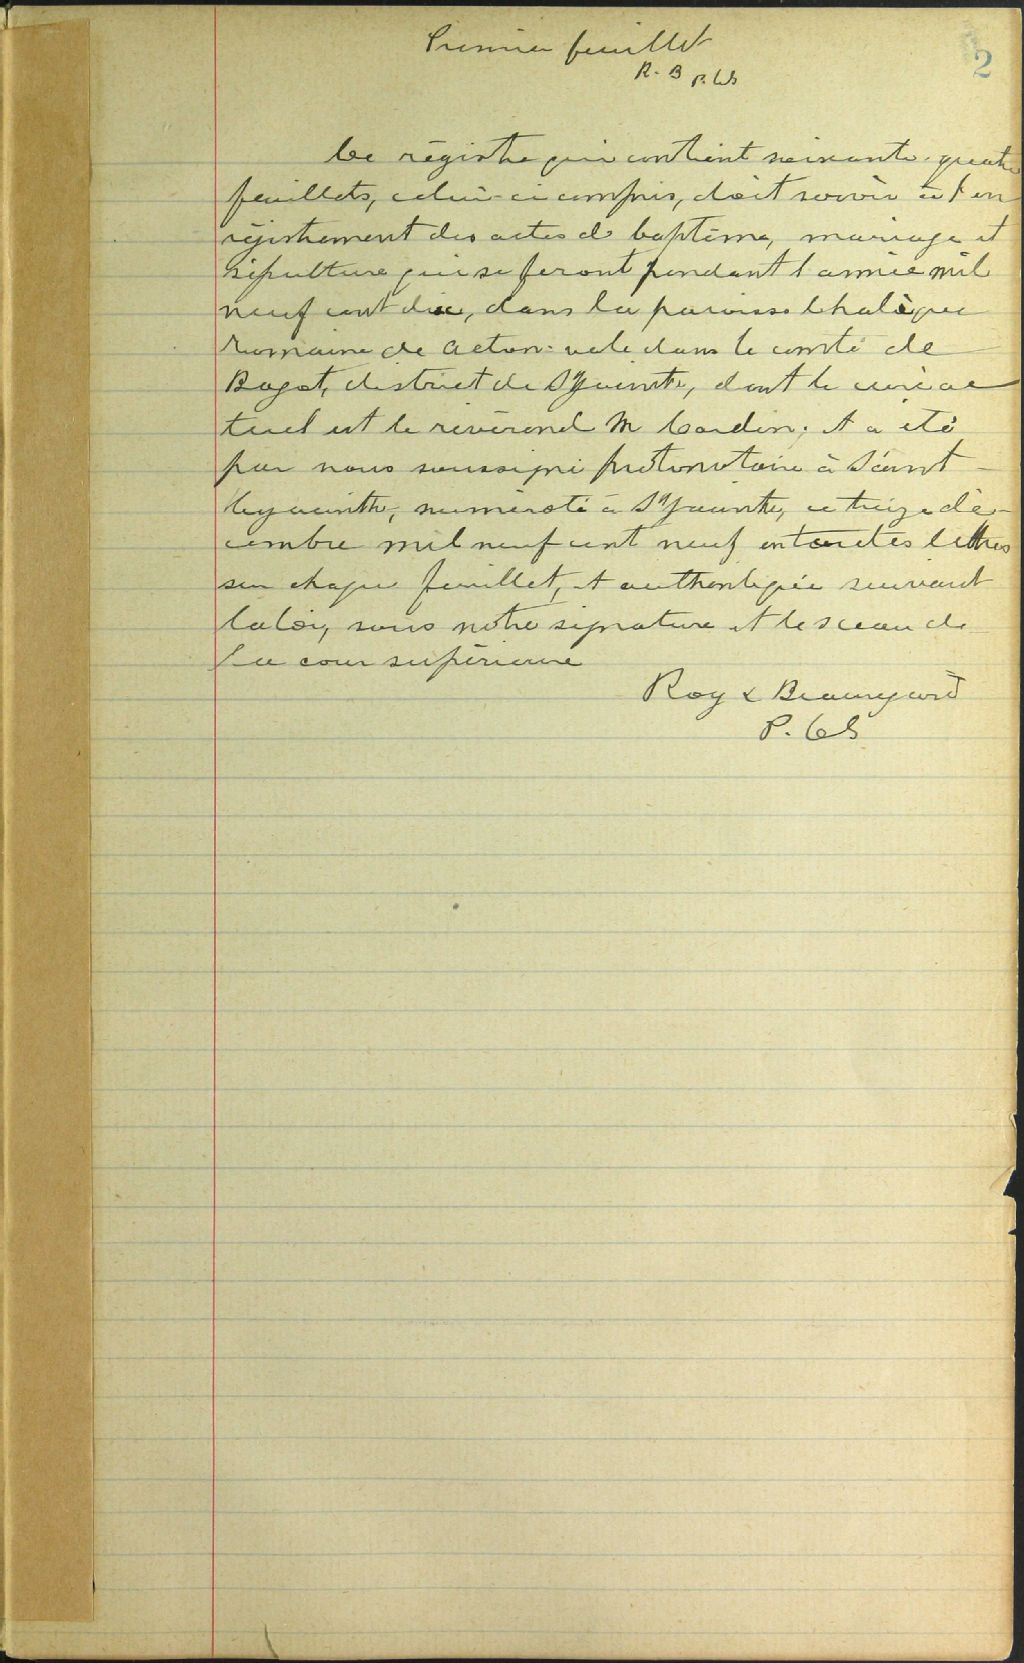 Premier feuillet
2
R. B P. C.S
Ce régistre qui contient soixante-quatre
feuillets, celui-ci compris, doit servir à l'en
régistrement des actes de baptême, mariage et
sépulture qui se feront pendant l'année mil
neuf cent dix, dans la paroisse Catholique
romaine de Acton-vale dans le comté de
Bagot, district de St Hyacinthe, dont le curé ac
tuel est le révérend M Cardin; et a été
par nous soussigné protonotaire à Saint
Hyacinthe, numéroté à St Hyacinthe, ce treize dé-
cembre mil neuf cent neuf en toutes lettres
sur chaque feuillet, et authentiqué suivant
la loi, sous notre signature et le sceau de
la cour supérieure
Roy & Beauregard
P. C S